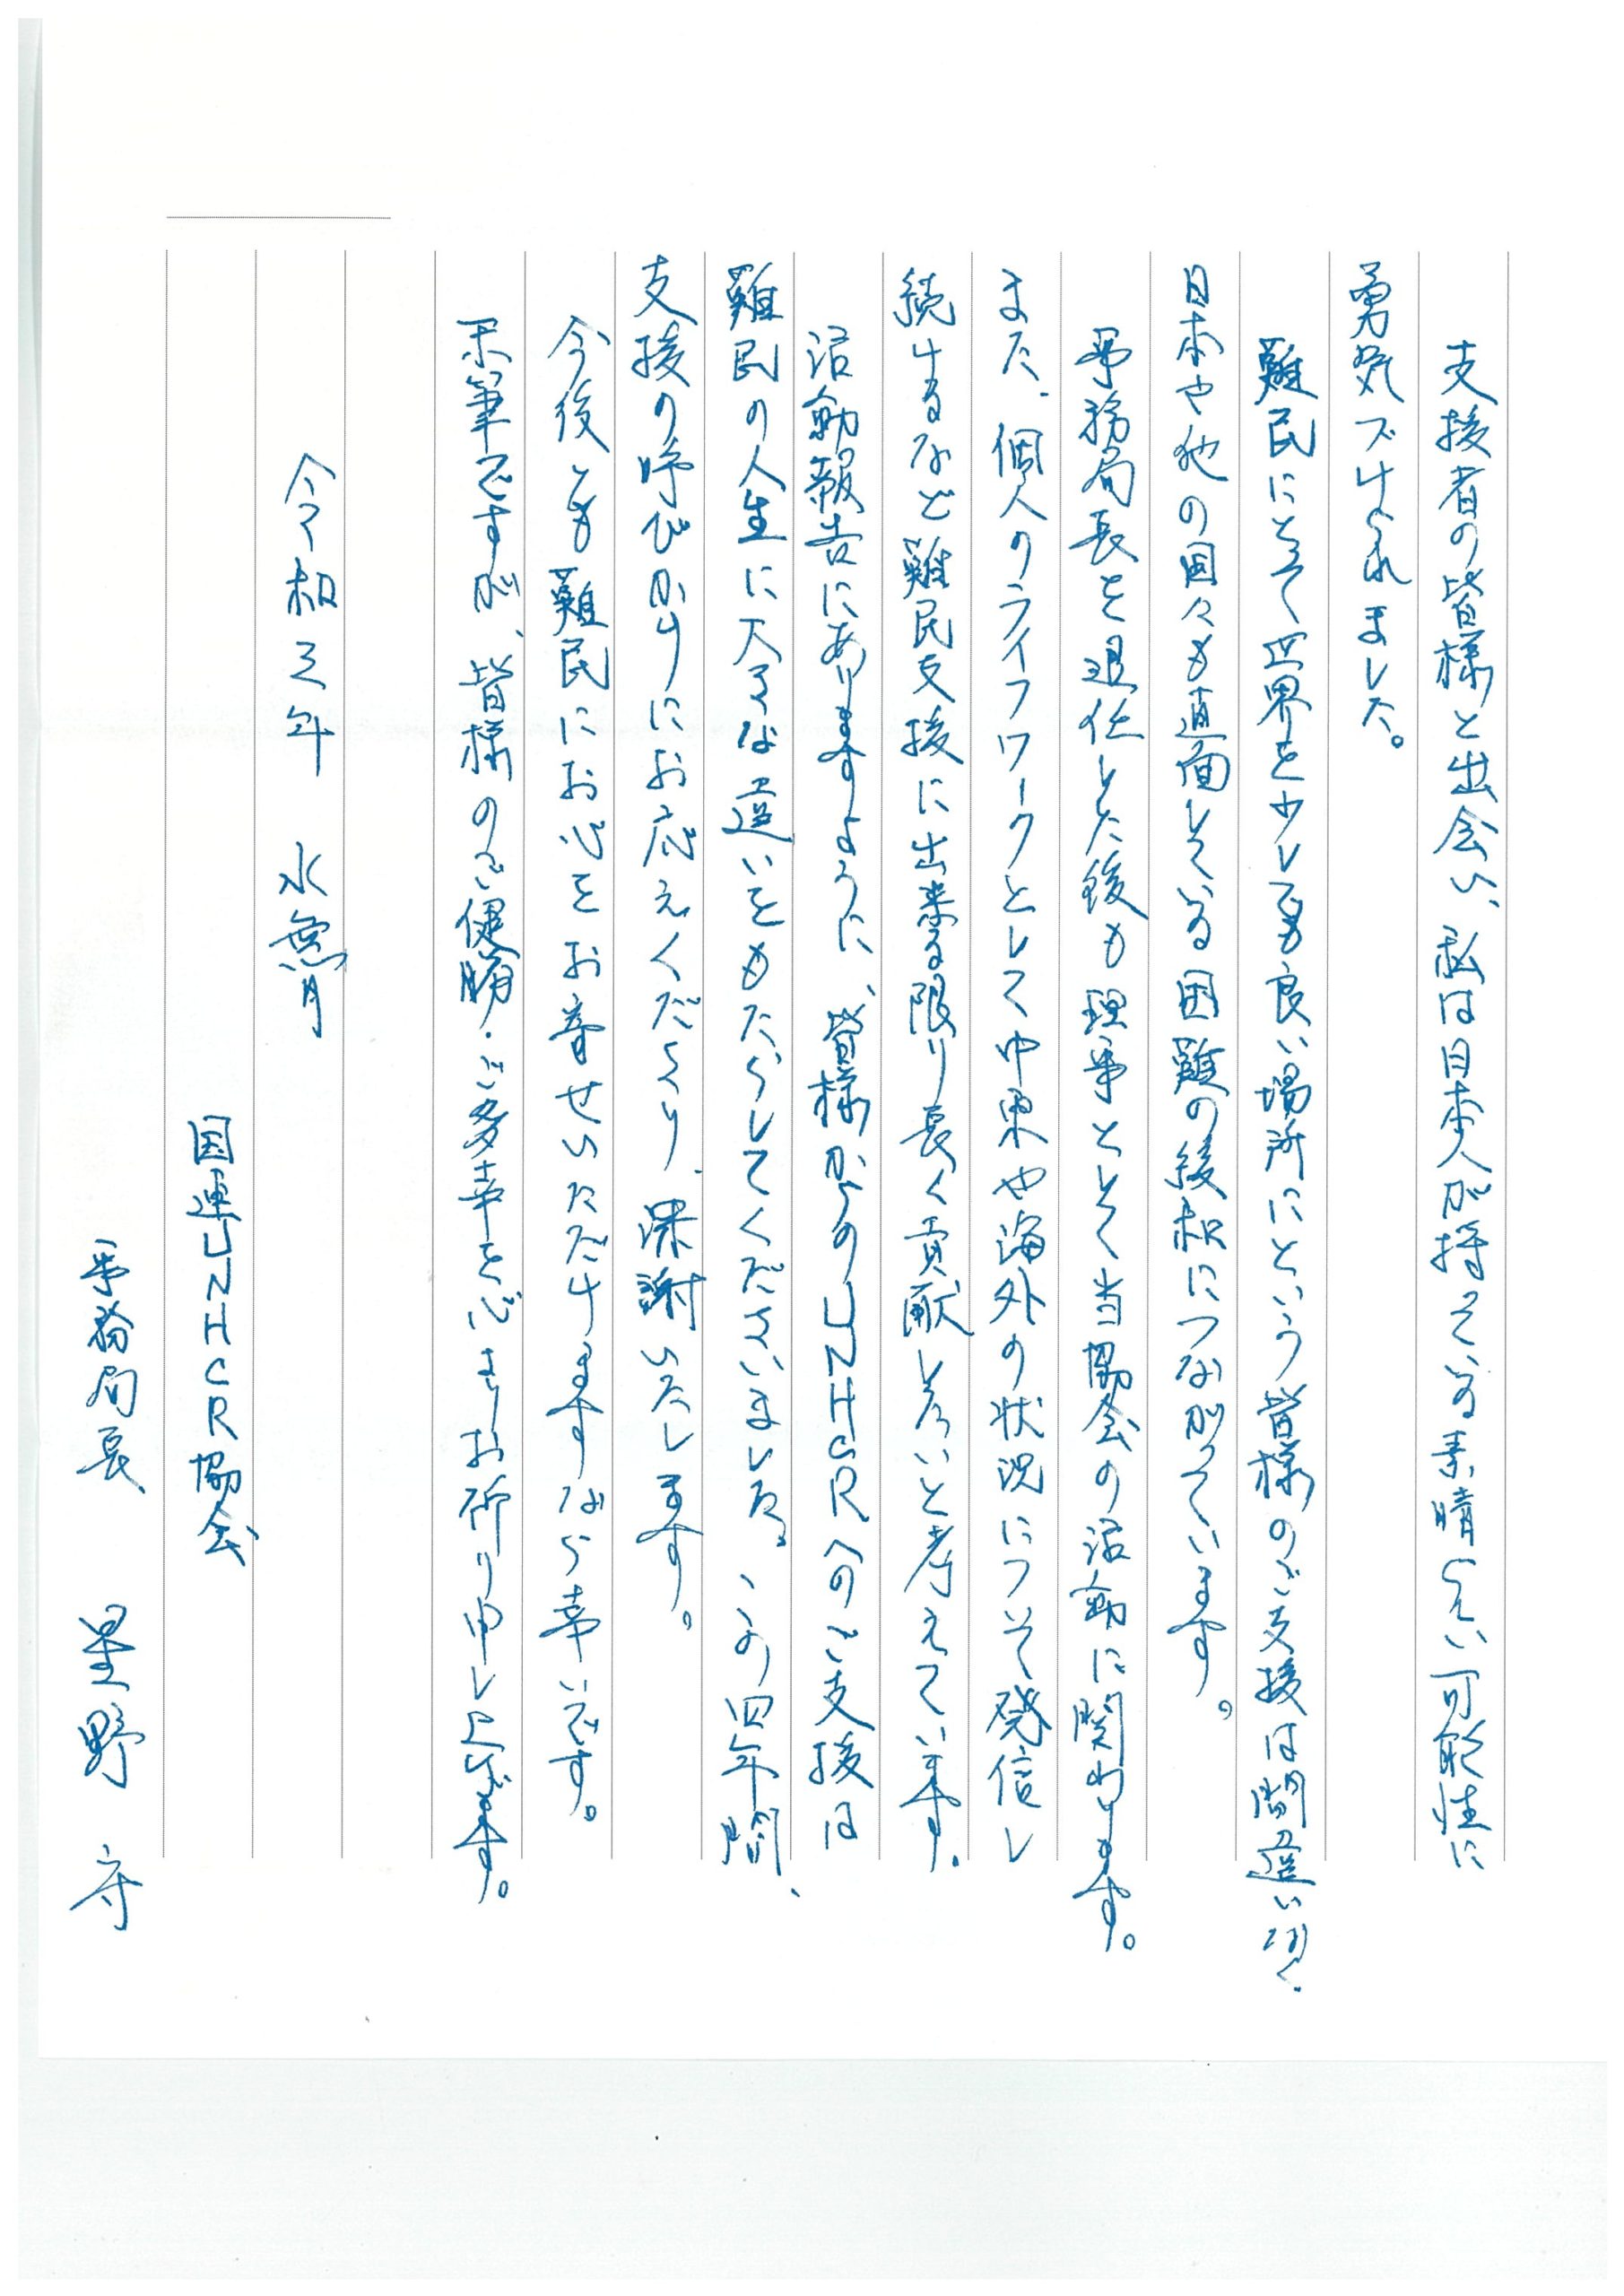 支援者の皆様と出会い、私は日本人が持っている素晴らしい可能性に
勇気づけられました。
難民にとって世界を少しでも良い場所にという皆様のご支援は間違いなく、
日本や他の国々も直面している困難の緩和につながっています。
事務局長を退任した後も理事として当協会の活動に関わります。
また、個人のライフワークとして中東や海外の状況について発信し
続けるなど難民支援に出来る限り長く貢献したいと考えています。
活動報告にありますように、皆様からのUNHCRへのご支援は
難民の人生に大きな違いをもたらしてくださいました。この四年間、
支援の呼びかけにお応えくださり、深謝いたします。
今後とも難民にお心をお寄せいただけますなら幸いです。
末筆ですが、皆様のご健勝・ご多幸を心よりお祈り申し上げます。
令和三年 水無月
国連UNHCR協会
事務局長 星野 守